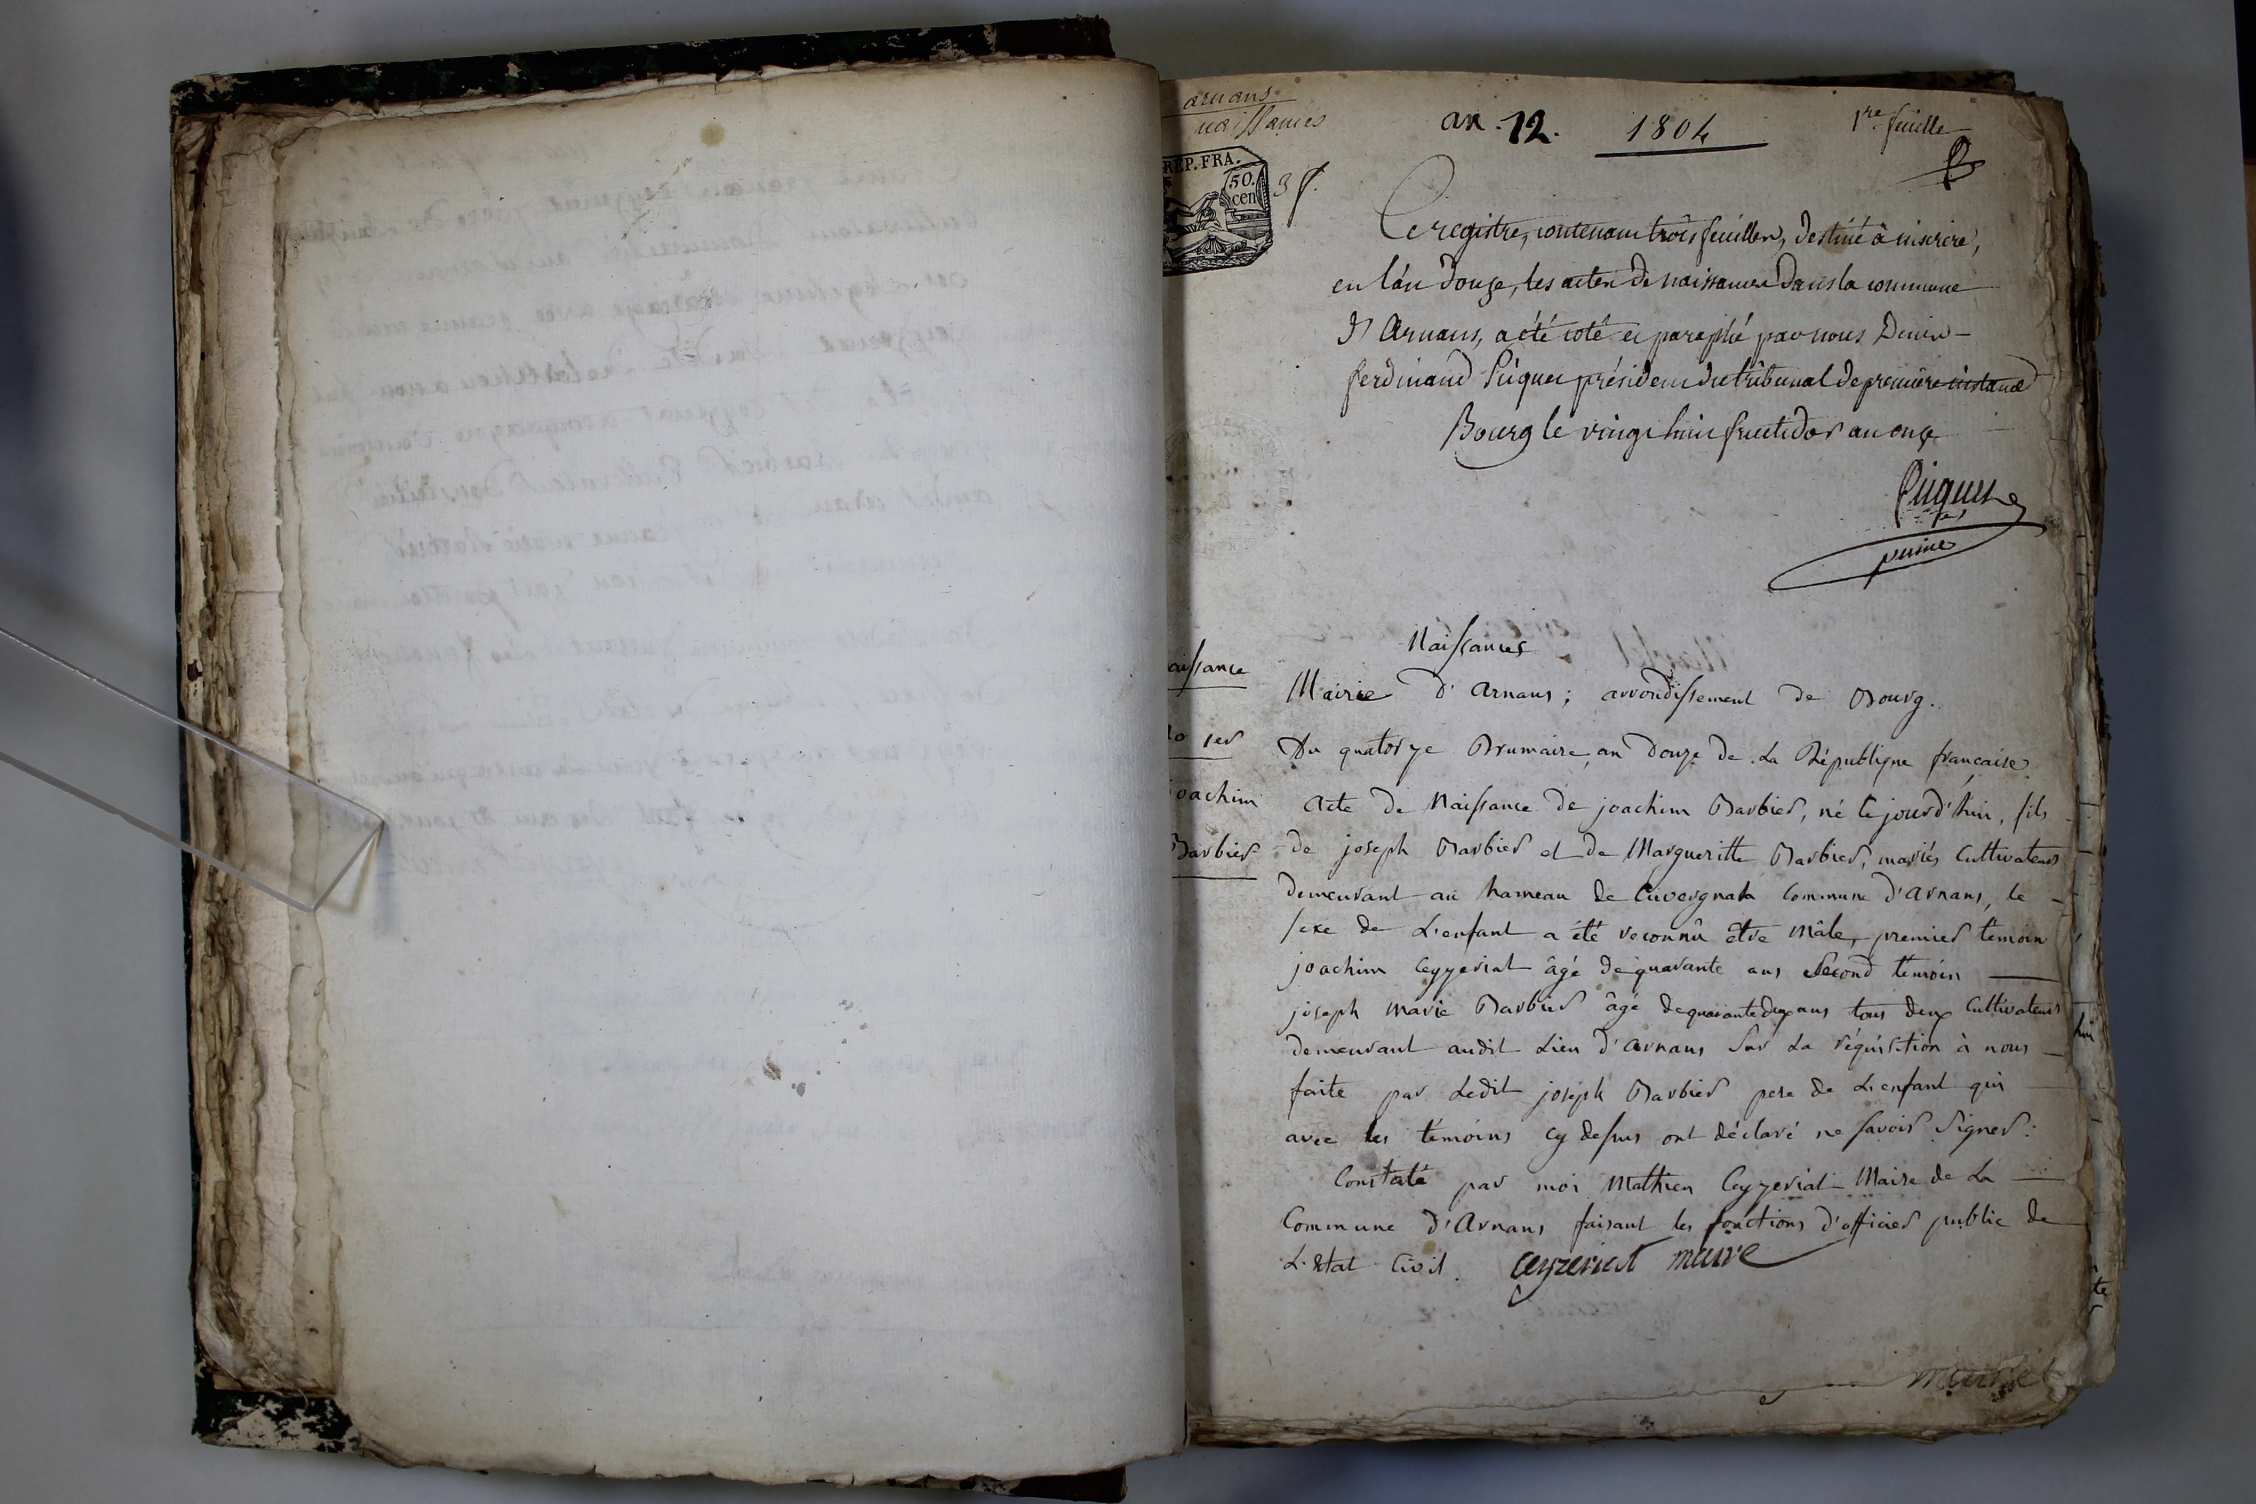 arnans
naissances
an 12. 1804
1re feuille
REP. FRA.
50. cen
3 f.
Ce registre, contenant trois feuillets, destiné à inscrire,
en l'an douze, les actes de naissance dans la commune
d'Arnans, a été coté et paraphé par nous Denis-
ferdinand Piquet président du tribunal de première instance
Bourg le vingt huit fructidor an onze
Piquet
Naissances
Mairie d'Arnans; arrondissement de Bourg.
Du quatorze Brumaire, an Douze de La République française
aissance
1er
joachim
Barbier
acte de Naissance de joachim Barbier, né cejourd'huy, fils
de joseph Barbier et de Margueritte Barbier, mariés Cultivateurs
demeurant au hameau de Cuvergnat commune d'Arnans, le
sexe de L'enfant a été reconnû être mâle, premier témoin
joachim Ceyzeriat âgé de quarante ans Second témoin
joseph marie Barbier âgé de quarante deux ans tous deux Cultivateurs
demeurant audit Lieu d'arnans Sur La réquisition à nous
faite par Ledit joseph Barbier pere de L'enfant qui
avec les témoins cy dessus ont déclaré ne savoir Signer:
Constaté par moi Mathieu Ceyzeriat Maire de La
Commune d'Arnans faisant les fonctions d'officier public de
L'Etat Civil. Ceyzeriat maire